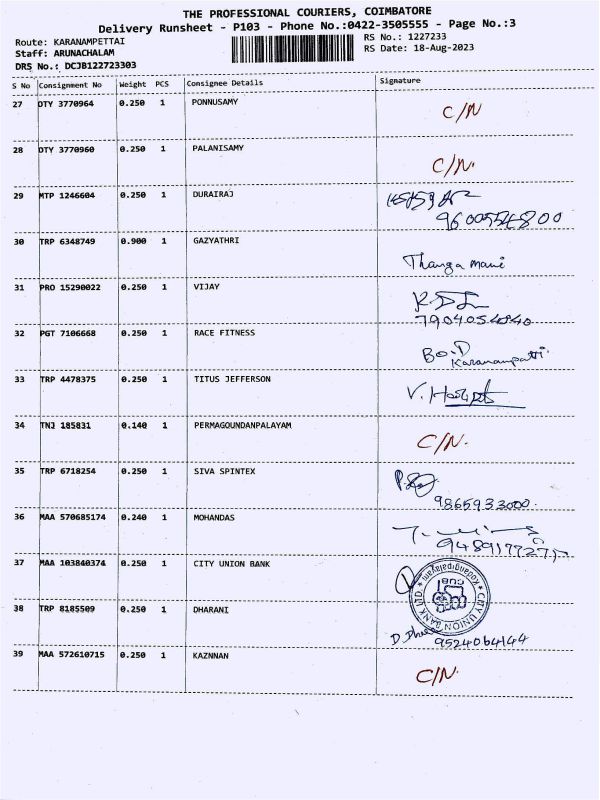 THE PROFESSIONAL COURIERS, COIMBATORE
Delivery Runsheet - P103 - Phone No.:0422-3505555 - Page No.:3
Route: KARANAMPETTAI RS No.: 1227233
Staff: ARUNACHALAM RS Date: 18-Aug-2023
DRS No.: DCJB122723303
S No Consignment No Weight PCS Consignee Details Signature
27 DTY 3770964 0.250 1 PONNUSAMY C/N
28 DTY 3770960 0.250 1 PALANISAMY C/N.
29 MTP 1246604 0.250 1 DURAIRAJ
9600554800
30 TRP 6348749 0.900 1 GAZYATHRI Thanga mani
31 PRO 15290022 0.250 1 VIJAY
7904054840
32 PGT 7106668 0.250 1 RACE FITNESS B.O.D
Karanampatti
33 TRP 4478375 0.250 1 TITUS JEFFERSON V.
34 TNJ 185831 0.140 1 PERMAGOUNDANPALAYAM C/N.
35 TRP 6718254 0.250 1 SIVA SPINTEX
9865933000.
36 MAA 570685174 0.240 1 MOHANDAS
37 MAA 103840374 0.250 1 CITY UNION BANK CITY UNION BANK LTD
CUB
38 TRP 8185509 0.250 1 DHARANI
9524064144
39 MAA 572610715 0.250 1 KAZNNAN C/N.